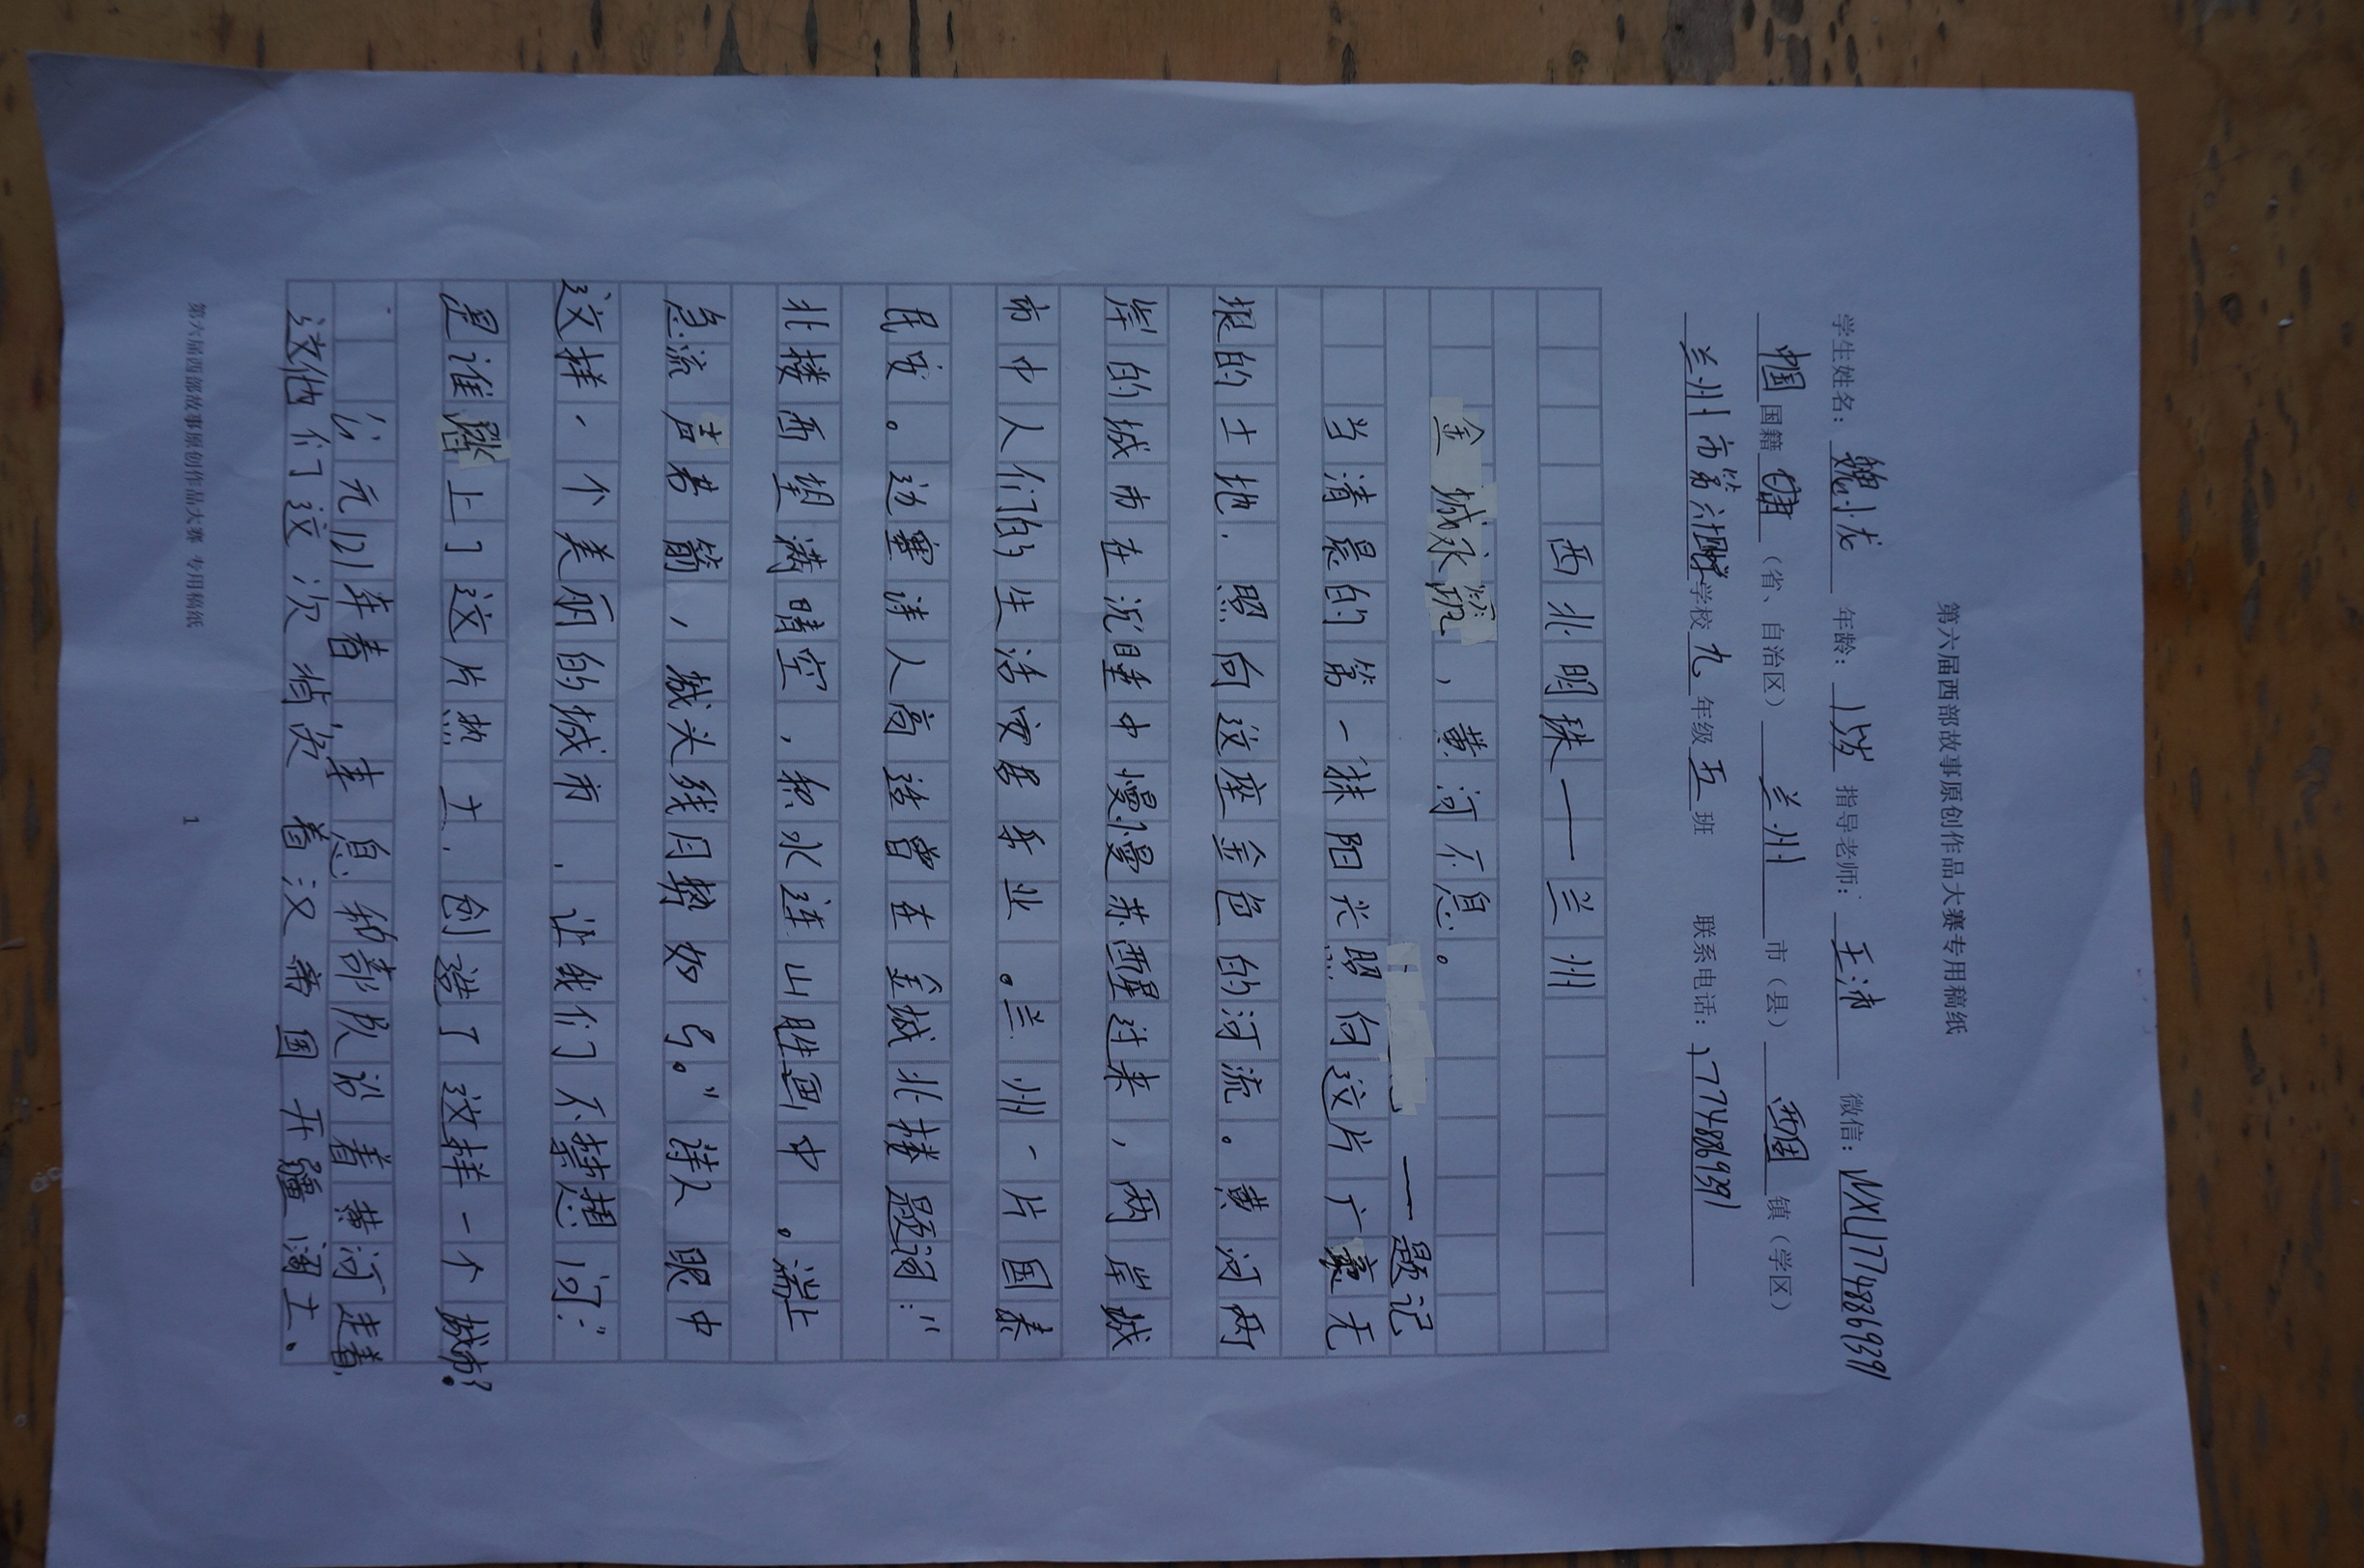 第六届西部故事原创作品大赛专用稿纸
学生姓名：魏小龙 年龄：15岁 指导老师：王沛 微信：WXL17748869391
中国国籍 甘肃（省、自治区） 兰州 市（县） 西固 镇（学区）
兰州市第 学校九年级五班 联系电话：17748869391
西北明珠——兰州
金城永筑，黄河不息。
——题记
当清晨的第一抹阳光照向这片广袤无
垠的土地，照向这座金色的河流。黄河两
岸的城市在沉睡中慢慢苏醒过来，两岸城
市中人们的生活安居乐业。兰州一片国泰
民安。边塞诗人高适曾在金城北楼题词：“
北楼西望满晴空，积水连山胜画中。湍上
急流声若箭，城头残月势如弓。”诗人眼中
这样一个美丽的城市，让我们不禁想问：“
是谁踏上了这片热土，创造了这样一个城市？
公元前121年春 率 的部队沿着黄河走着，
这他们这次 着汉帝国开疆阔土、
第六届西部故事原创作品大赛 专用稿纸
1